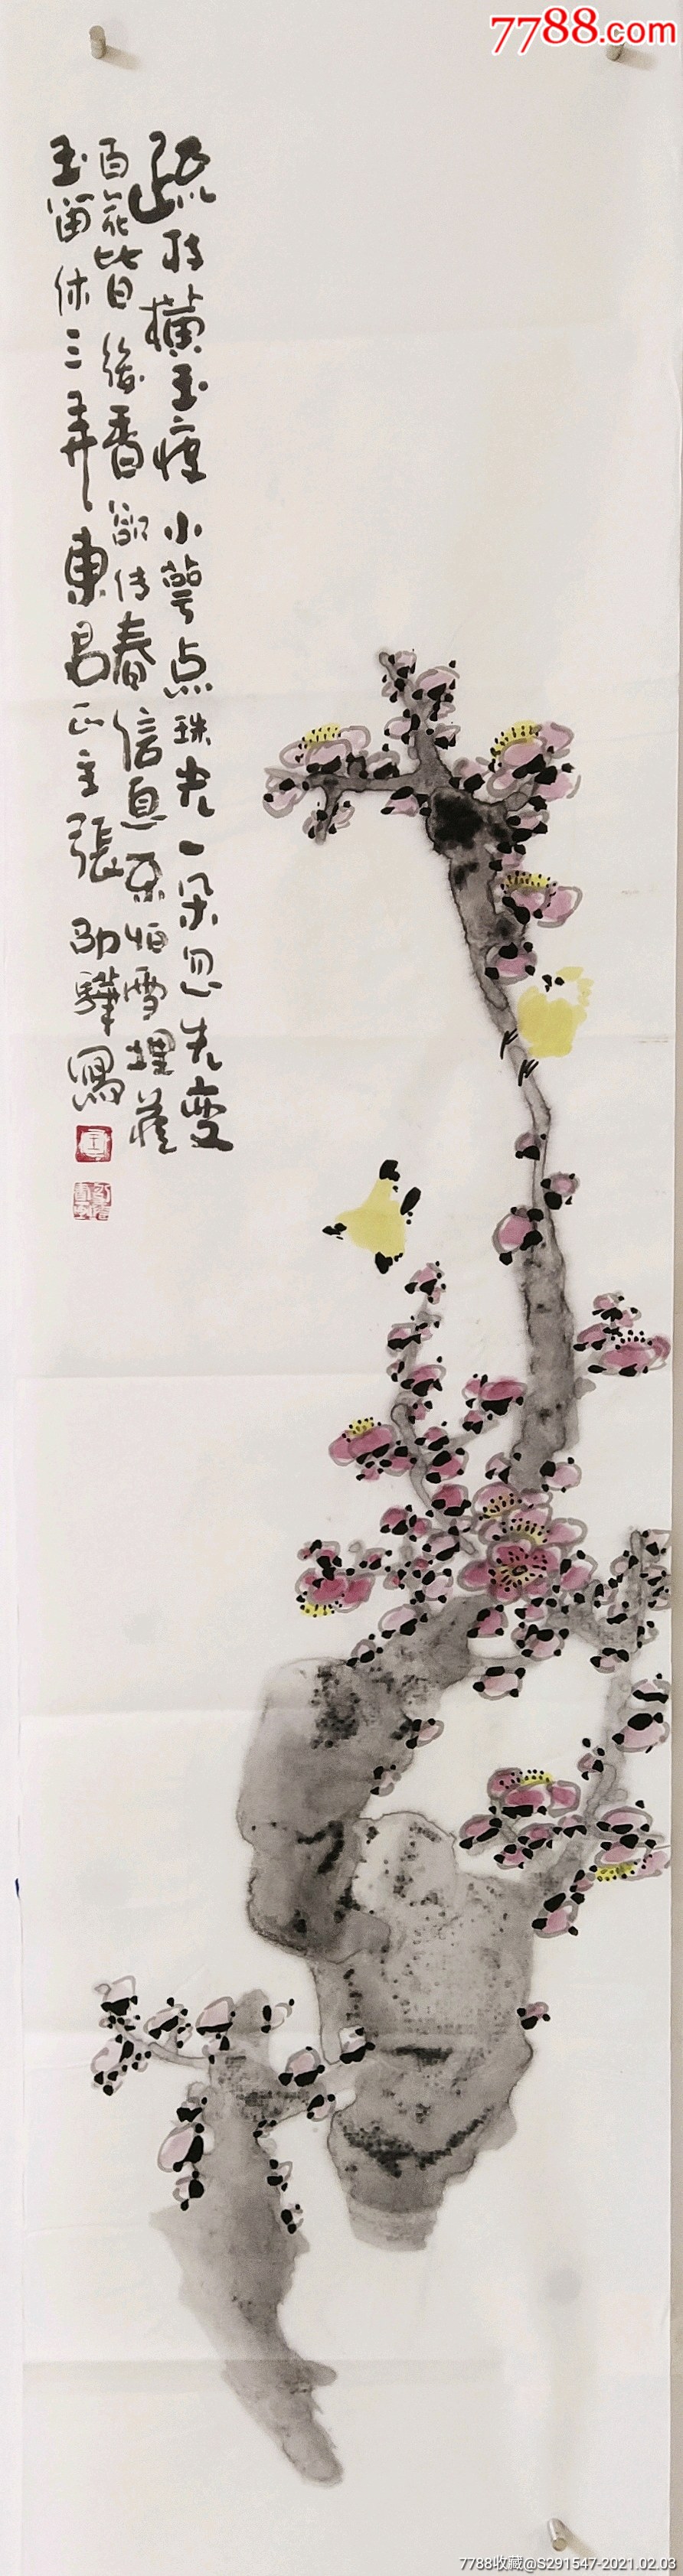 7788.com
疏枝橫玉瘦小萼点珠光一朵忽先变
百花皆後香欲传春信息不怕雪埋藏
玉笛休三弄東君正主張 劭驊寫
7788收藏@S291547-2021.02.03